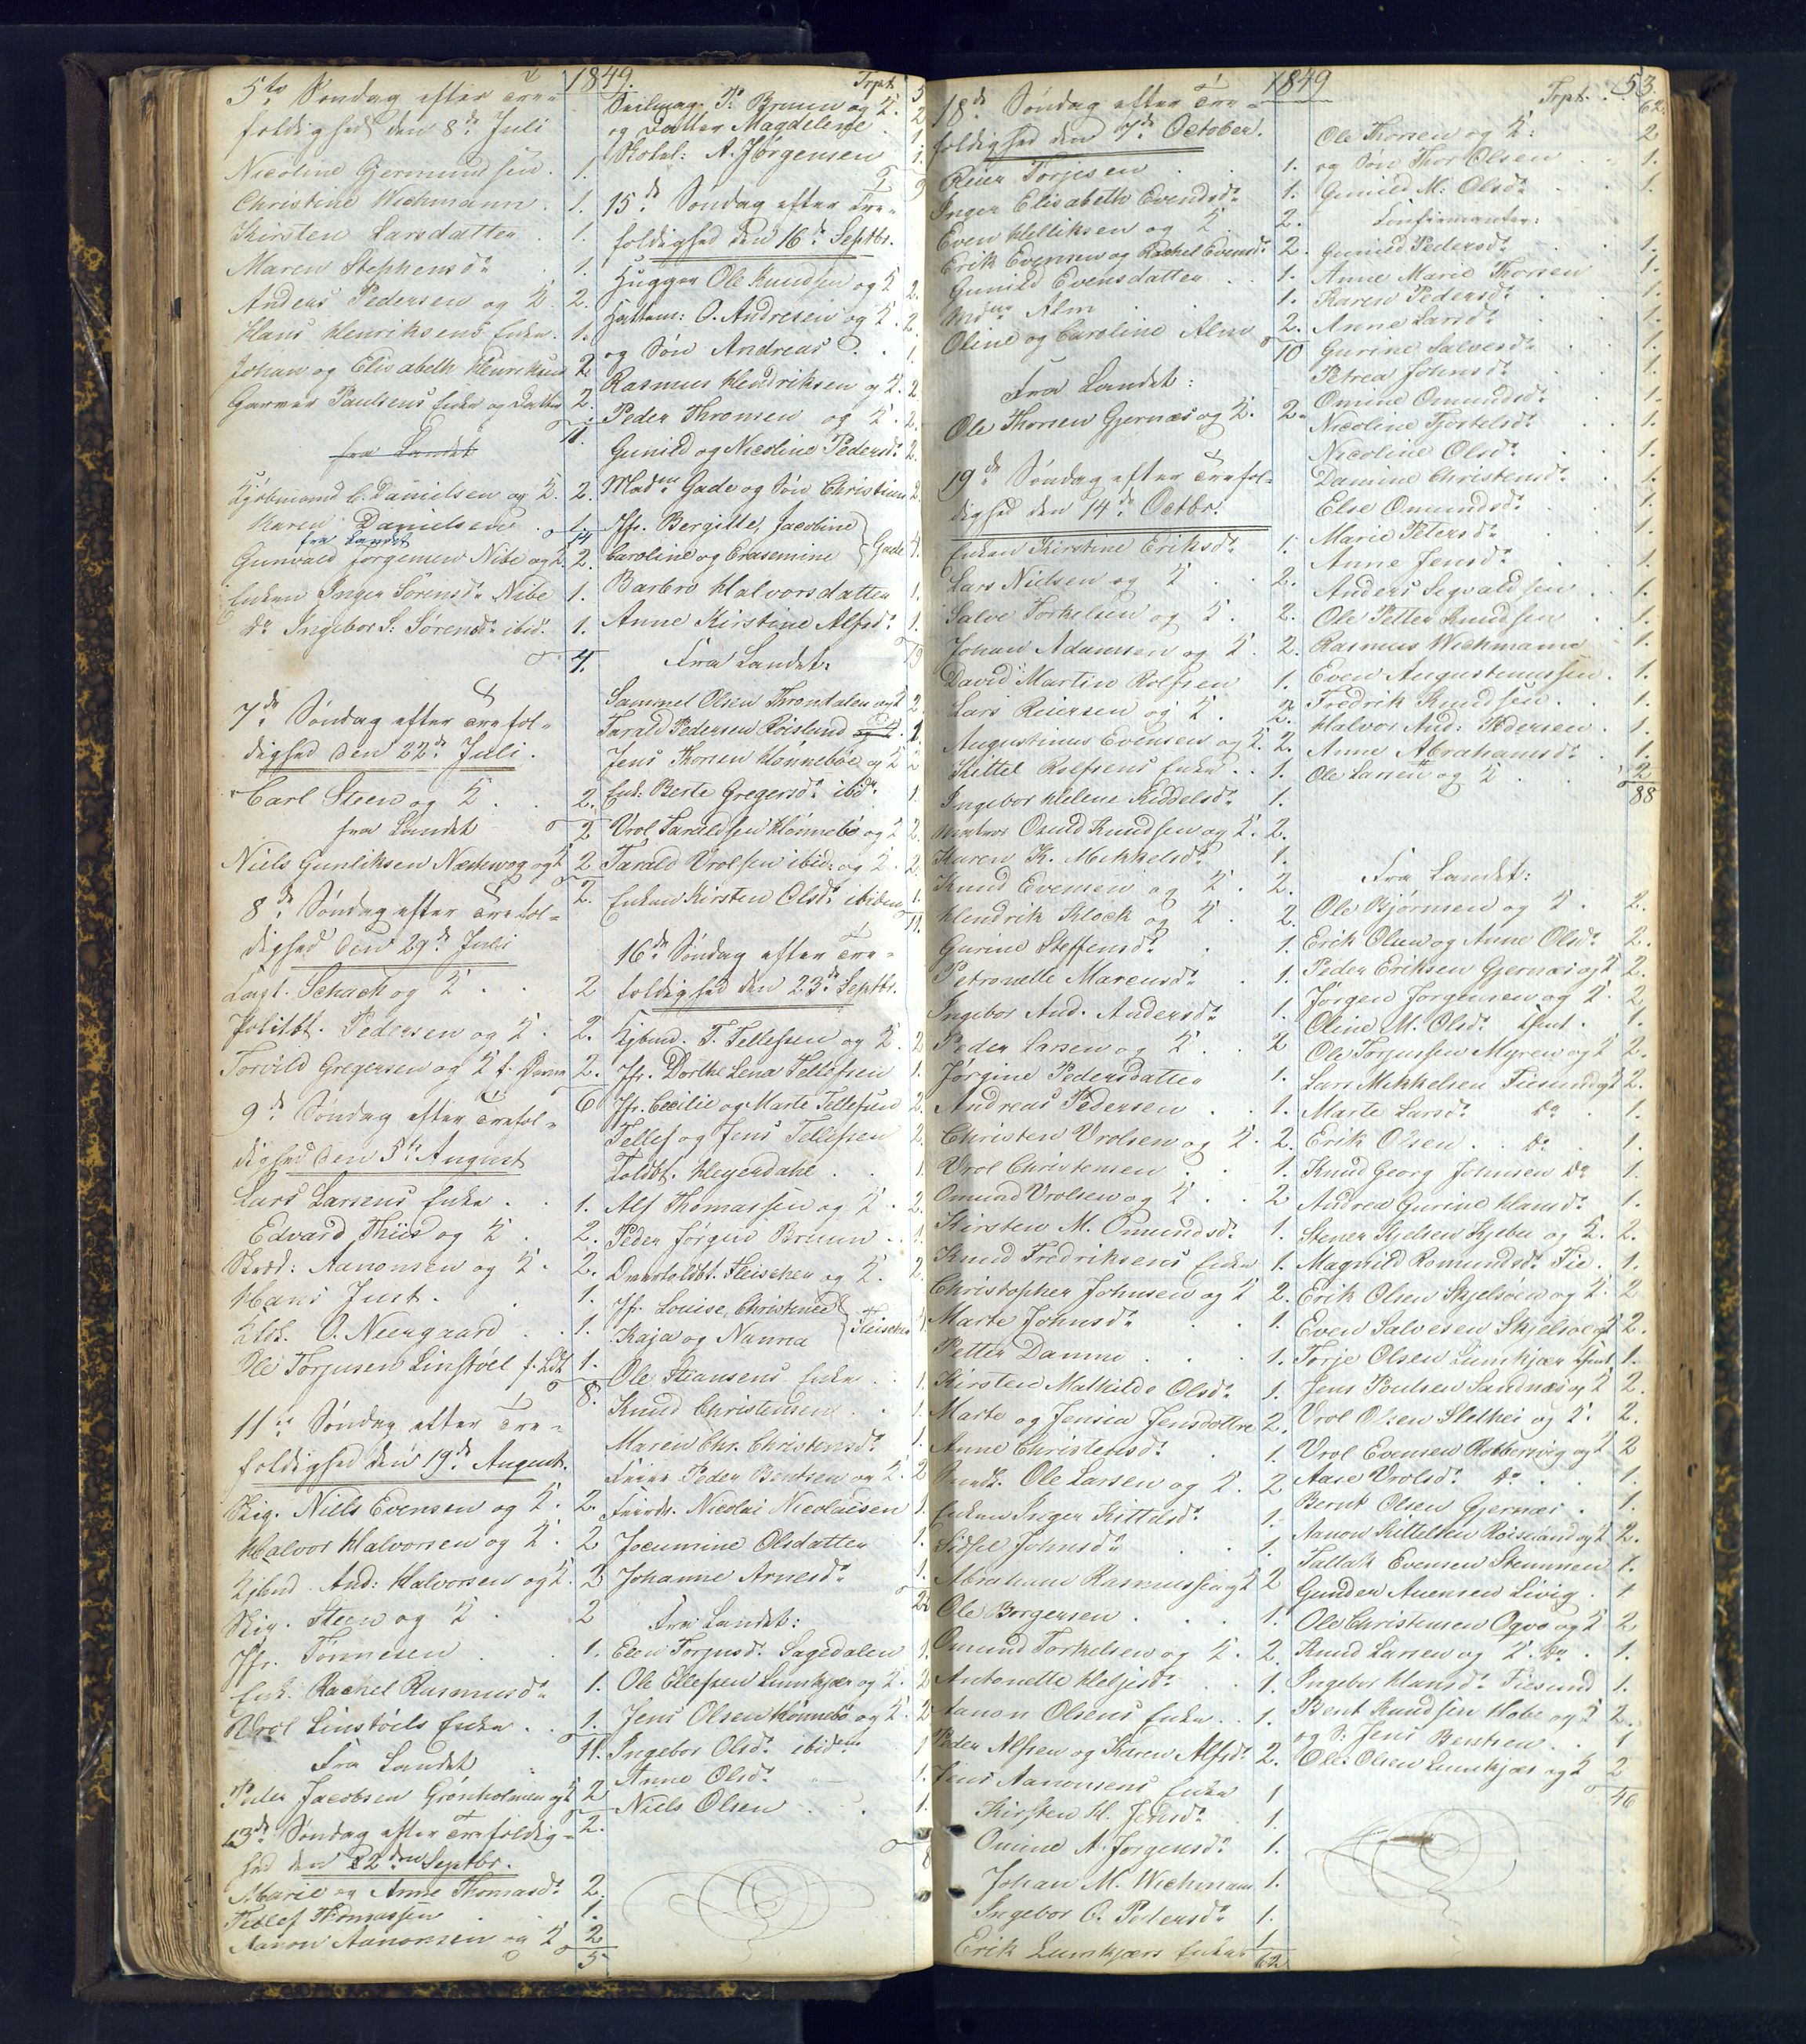 1849.
5te Søndag efter Tre=
foldighed den 8de Juli
Nicoline Gjermundsen . 1.
Christine Wichmann . 1.
Kirsten Larsdatter . 1.
Maren Stephensdr 1.
Anders Pedersen og K 2.
Hans Henriksens Enke . 1.
Johan og Elisabeth Henriksen 2
Garver Paulsens Enke og Datter 2.
11.
fra Landet
Kjøbmand C. Danielsen og K. 2.
Karen Danielsen . 1.
14
fra Landet
Gunvald Jørgensen Nibe og K. 2.
Enken Inger Sørensdr Nibe 1.
dr Ingebor S. Sørensdr ibid. 1.
4.
7de Søndag efter Trefol=
dighed den 22de Juli.
Carl Steen og K . . 2.
2
fra Landet
Niels Gunliksen Næskvog og K 2
2.
8de Søndag efter Trefol=
dighed den 29de Juli
Schack og K . . 2
Politbt. Pedersen og K . 2.
Torvild Gregersen og K f. 2.
6
9de Søndag efter Trefol=
dighed den 5te August
Lars Larsens Enke . . 1.
Edvard Thiis og K . 2.
Skrd: Aanonsen og K . 2.
Hans Just . . 1.
O. Neergaard . . 1.
Ole Torjusen Linstøel f. Ldt 1.
8.
11te Søndag efter Tre=
foldighed den 19de August.
Skig. Niels Evensen og K . 2.
Halvor Halvorsen og K . 2
Kjbmd. And: Halvorsen og K. 2
Skig. Steen og K . 2
Jfr. Tønnesen . . 1.
Enk. Rachel Rasmusdr 1.
Wrol Linstøels Enke . . 1.
11.
Fra Landet
Peder Jacobsen Grønholmen og K 2
2.
13de Søndag efter Trefoldig=
hed den 2den Septbr.
Marie og Anne Thomasdr 2.
Tellef Thomassen . . 1.
Aanon Aanonsen og K 2
5
Trpt 5
Seilmag. P. Bruun og K . 2
og Datter Magdelene . 1.
Skolel: A. Jørgensen 1.
9
15de Søndag efter Tre=
foldighed den 16de Septbr.
Hugger Ole Knudsen og K 2.
O. Andresen og K . 2.
og Søn Andreas . . 1.
Rasmus Hendriksen og K . 2
Peder Thronsen og K . 2.
Gunild og Nicoline Pedersdr 2.
Madme Gade og Søn Christian 2.
Jfr. Bergitte, Jacobine
Caroline og Erasemine } Gade 4.
Barbro Halvorsdatter 1.
Anne Kirstine Alfsdr 1.
19
Fra Landet:
Sammel Olsen Throndalen og K 2
Tarald Pedersen Røislund og K. 1
Jens Thorsen Hønnebøe og K 2
Enk: Berte Gregersdr ibid. 1.
Vrol Taraldsen Hønnebø og K 2.
Tarald Vrolsen ibid: og K . 2.
Enken Kirsten Olsdr ibidem 1.
11.
16de Søndag efter Tre=
foldighed den 23de Septbr.
Kjbmd. T. Tellefsen og K . 2
Jfr. Dorthe Lena Tellefsen 1.
Jfr. Cecilie og Marte Tellefsen 2.
Tellef og Jens Tellefsen 2.
Toldbt. Heyerdahl . . 1.
Alf Thomassen og K . 2.
Peder Jørgen Bruun . . 1.
Overtoldbt. Fleischer og K . 2
Jfr. Louise, Christense
Kaja og Nanna } Fleischer 4.
Ole Stiansens Enke . 1.
Knud Christensen . . 1.
Maren Chr. Christensdr 1.
Peder Bentsen og K . 2
Nicolai Nicolaisen 1.
Jocumine Olsdatter 1.
Johanne Arnesdr . 1.
Fra Landet:
Elen Torjusdr Sagedalen 1.
Ole Ellefsen Lunnkjær og K . 2
Jens Olsen Hønnebø og K . 2
Ingebor Olsdr ibidem 1
Anne Olsdr 1.
Niels Olsen . . . 1.
8
1849
53.
18de Søndag efter Tre=
foldighed den 7de October.
Reier Torjesen . . 1.
Inger Elisabeth Evendsdr 1.
Even Helliksen og K . 2.
Erik Evensen og Rachel Evensdr 2.
Gunild Evensdatter . . 1.
Mdme Alm . . 1.
Oline og Caroline Alm 2.
10
Fra Landet:
Ole Thorsen Gjernæs og K. 2.
19de Søndag efter Trefol=
dighed den 14de Octbr.
Enken Kirstine Eriksdr 1.
Lars Nielsen og K . . 2.
Salve Torkelsen og K . 2.
Johan Adamsen og K . 2.
David Martin Rolfsen 1.
Lars Reiersen og K . 2.
Augustinus Evensen og K. 2.
Kittel Rolfsens Enke . . 1.
Ingebor Helene Kiddelsdr 1.
Osuld Knudsen og K . 2.
Karen K. Mekkelsdr 1.
Knud Evensen og K . 2.
Hendrik Klock og K . 2.
Gurine Steffensdr . 1.
Petronelle Marcusdr . 1.
Ingebor And. Andersdr 1.
Peder Larsen og K . . 2
Jørgine Pedersdatter 1.
Andreas Pedersen . . 1.
Christen Vrolsen og K . 2.
Vrol Christensen . . 1.
Omund Vrolsen og K . . 2
Kirsten M. Omundsdr 1.
Knud Fredriksens Enke 1.
Christopher Johnsen og K 2.
Marte Johnsdr . . 1.
Petter Damm . . . 1.
Kirsten Mathilde Olsdr 1.
Marte og Jensia Jensdøttre 2.
Anne Christensdr . 1.
Ole Larsen og K . 2
Enken Inger Kittelsdr 1.
Sidsel Johnsdr . . 1.
Abraham Rasmussen og K 2
Ole Borgersen . . . 1.
Omund Torkelsen og K . 2.
Antonette Heljesdr . . 1.
Aanon Olsens Enke . . 1.
Peder Alfsen og Karen Alfsdr 2.
Jens Aanonsens Enke 1
Kirsten H. Jensdr . 1.
Omine A. Jørgensdr 1.
Johan M. Wichmann 1.
Ingebor C. Pedersdr 1.
Erik Lunnkjærs Enke 1
62
Trpt . . 62.
Ole Thorsen og K: 2
og Søn Thor Olsen . . 1.
Gunild M: Olsdr . . 1.
Confirmanter:
Gunild Pedersdr . . 1.
Anne Marie Thorsen 1.
Karen Pedersdr . . 1.
Anne Larsdr . . 1.
Gurine Salvesdr . . 1.
Petrea Johnsdr . . 1.
Omine Omundsdr . . 1.
Nicoline Tjostelsdr . . 1.
Nicoline Olsdr . . 1.
Damine Christensdr . 1.
Else Omundsdr . . 1.
Marie Petersdr . . 1.
Anne Jensdr . . 1.
Anders Segvaldsen . . 1.
Ole Petter Knudsen . . 1.
Rasmus Wichmann . 1.
Even Augustinussen . 1.
Fredrik Knudsen . . 1.
Halvor And: Pedersen . 1.
Anne Abrahamsdr . 1.
Ole Larsen og K . . 2
88
Fra Landet:
Ole Bjørnsen og K . 2.
Erik Olsen og Anne Olsdr 2.
Peder Eriksen Gjernæs og K 2.
Jørgen Jørgensen og K . 2
Oline M. Olsdr Cfmt . 1.
Ole Torjussen Myren og K 2.
Lars Mekkelsen Fiesund og K 2.
Marte Larsdr do . 1.
Erik Olsen . . do . 1.
Knud Georg Johnsen do 1.
Andrea Gurine Hansdr 1.
Stener Kjebu og K . 2.
Magnild Romundsdr Fie . 1.
Erik Olsen Skjelsøen og K . 2
Even Salvesen Skjelsøe og K 2.
Torje Olsen Lunnkjær Cfmt. 1.
Jens Poulsen Sandnæs og K 2.
Vrol Olsen Slethei og K . 2.
Vrol Evensen Robbersvig og K 2
Aase Vrolsdr do . . 1.
Bernt Olsen Gjernæs . 1.
Aanon Kittelsen Røiseland og K 2.
Tallak Evensen Stemmen 1.
Gunder Auensen Livig . 1
Ole Christensen Ogvo og K 2
Knud Larsen og K . do . 1.
Ingebor Hansdr Fiesund 1.
Bent Knudsen Hobe og K 2.
og S. Jens Bentsen . . 1
Ole Olsen Lunnkjær og K 2
46